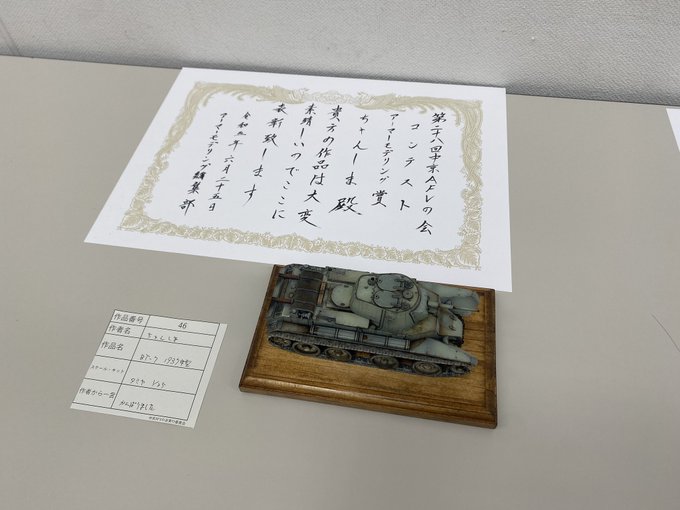 第二八回中京AFVの会
コンテスト
アーマーモデリング賞
ちゃんしま殿
貴方の作品は大変
素晴しいのでここに
表彰致します
令和五年六月二十五日
アーマーモデリング編集部
作品番号 46
作者名 ちゃんしま
作品名
スケール・キット タミヤ 1/48
作者から一言 がんばりました